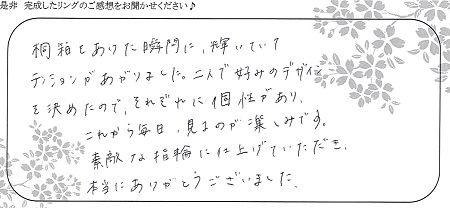 是非 完成したリングのご感想をお聞かせください♪
桐箱をあけた瞬間に、輝いていて
テンションがあがりました。二人で好みのデザイン
を決めたので、それぞれに個性があり、
これから毎日、見るのが楽しみです。
素敵な指輪に仕上げていただき、
本当にありがとうございました。